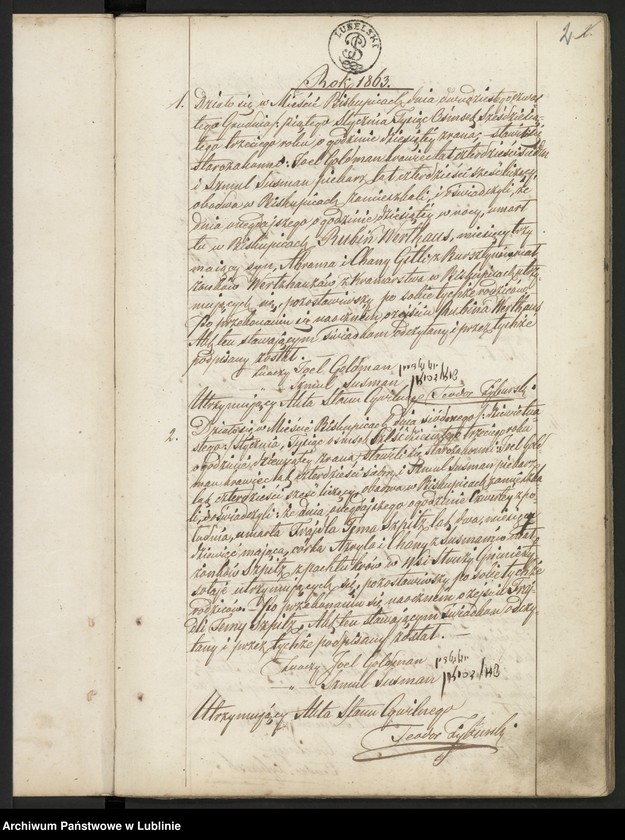 LUBELSKI
2
Rok 1863.
1. Działo się w Mieście Biskupicach dnia dwudziestego czwar
tego Grudnia / piątego Stycznia Tysiąc Ośmset Sześćdziesią
tego trzeciego roku o godzinie dziesiątej zrana – stawili się
starozakonni Joel Goldman krawiec lat czterdzieści siedm
i Szmul Susman piekarz, lat czterdzieści sześć liczący,
obadwa w Biskupicach zamieszkali, i oświadczyli, że
dnia wczorajszego o godzinie dziesiątej w nocy, umarł
tu w Biskupicach, Rubin Werthaus, miesięcy trzy
mający syn, Abrama i Chany Gitli z Bursztynów mał
żonków Werthauzów z kramarstwa w Biskupicach utrzy
mujących się, pozostawiwszy po sobie tychże rodziców.
Po przekonaniu się naocznem o zejściu Rubina Werthaus
Akt ten stawającym świadkom odczytany i przez tychże
podpisany został.
Joel Goldman
Szmul Susman
Utrzymujący Akta Stanu Cywilnego Teodor
2. Działo się w Mieście Biskupicach dnia siódmego / dziewiętna
stego Stycznia, Tysiąc Ośmset Sześćdziesiątego trzeciego roku
o godzinie dziewiątej zrana, stawili się starozakonni Joel Gold
man krawiec lat czterdzieści siedm, i Szmul Susman piekarz
lat czterdzieści sześć liczący, obadwa w Biskupicach zamieszka
li, i oświadczyli: że dnia wczorajszego o godzinie czwartej z po
łudnia, umarła Frajdla Tema Szpitz, lat dwa, miesięcy
dziewięć mająca, córka Azryla i Chany z Susmanów mał
żonków Szpitz, z pachtu krów w Wsi Struży
utrzymujących się, pozostawiwszy po sobie tychże
rodziców. Po przekonaniu się naocznem o zejściu Fraj
dli Temy Szpitz, Akt ten stawającym świadkom odczy
tany i przez tychże podpisany został.
Joel Goldman
Szmul Susman
Utrzymujący Akta Stanu Cywilnego
Teodor
Archiwum Państwowe w Lublinie